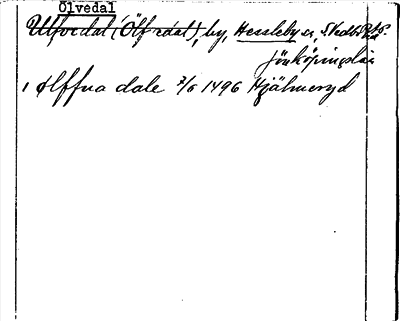 Ölvedal
Ulfvedal (Ölfvedal), by, Hessleby sn,
Jönköpings län
i ølffua dale 7/6 1496 Hjälmseryd